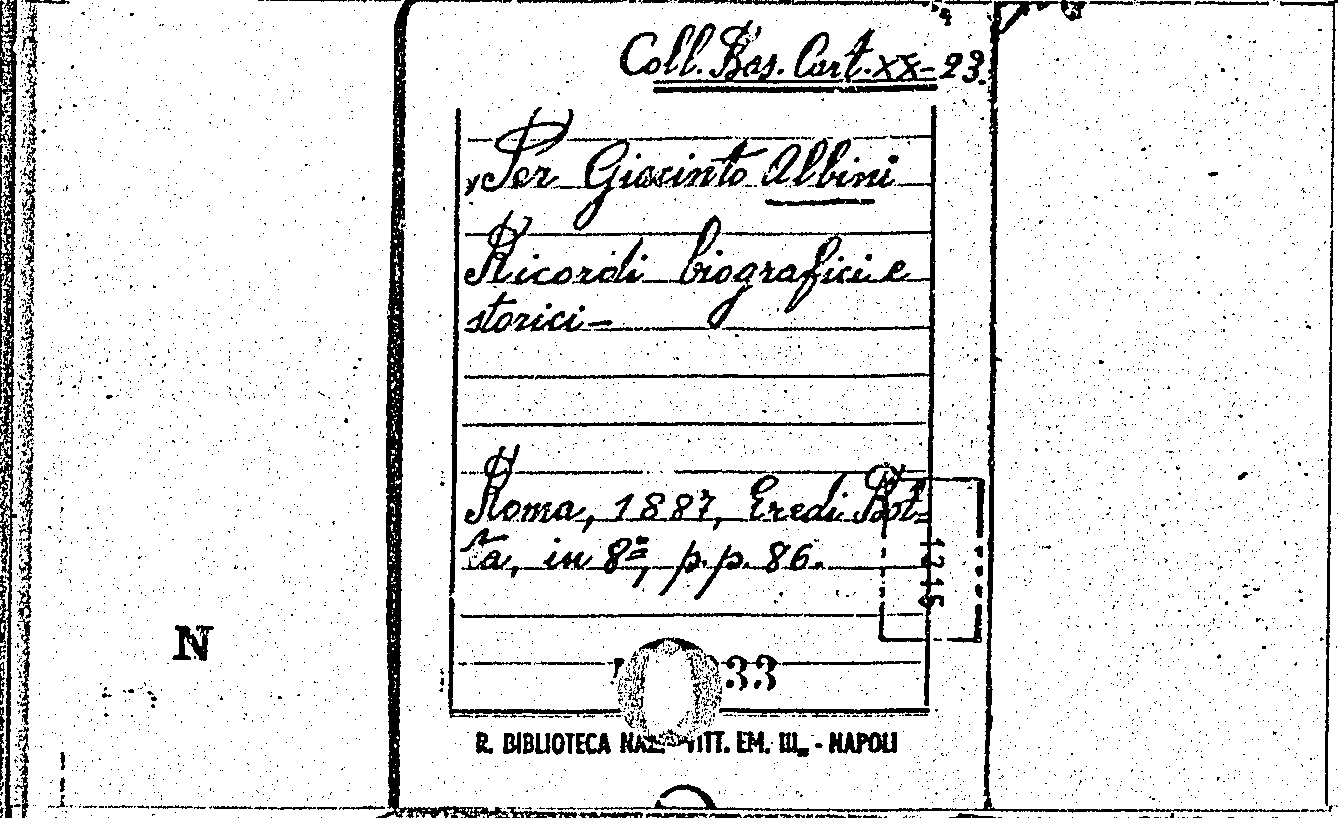 Coll. Bas. Cart. XX-23.
„Per Giacinto Albini
Ricordi biografici e
storici-
Roma, 1887, Eredi Bot=
ta, in 8º, p.p. 86.
1215
N
33
R. BIBLIOTECA NAZ. VITT. EM. III. - NAPOLI